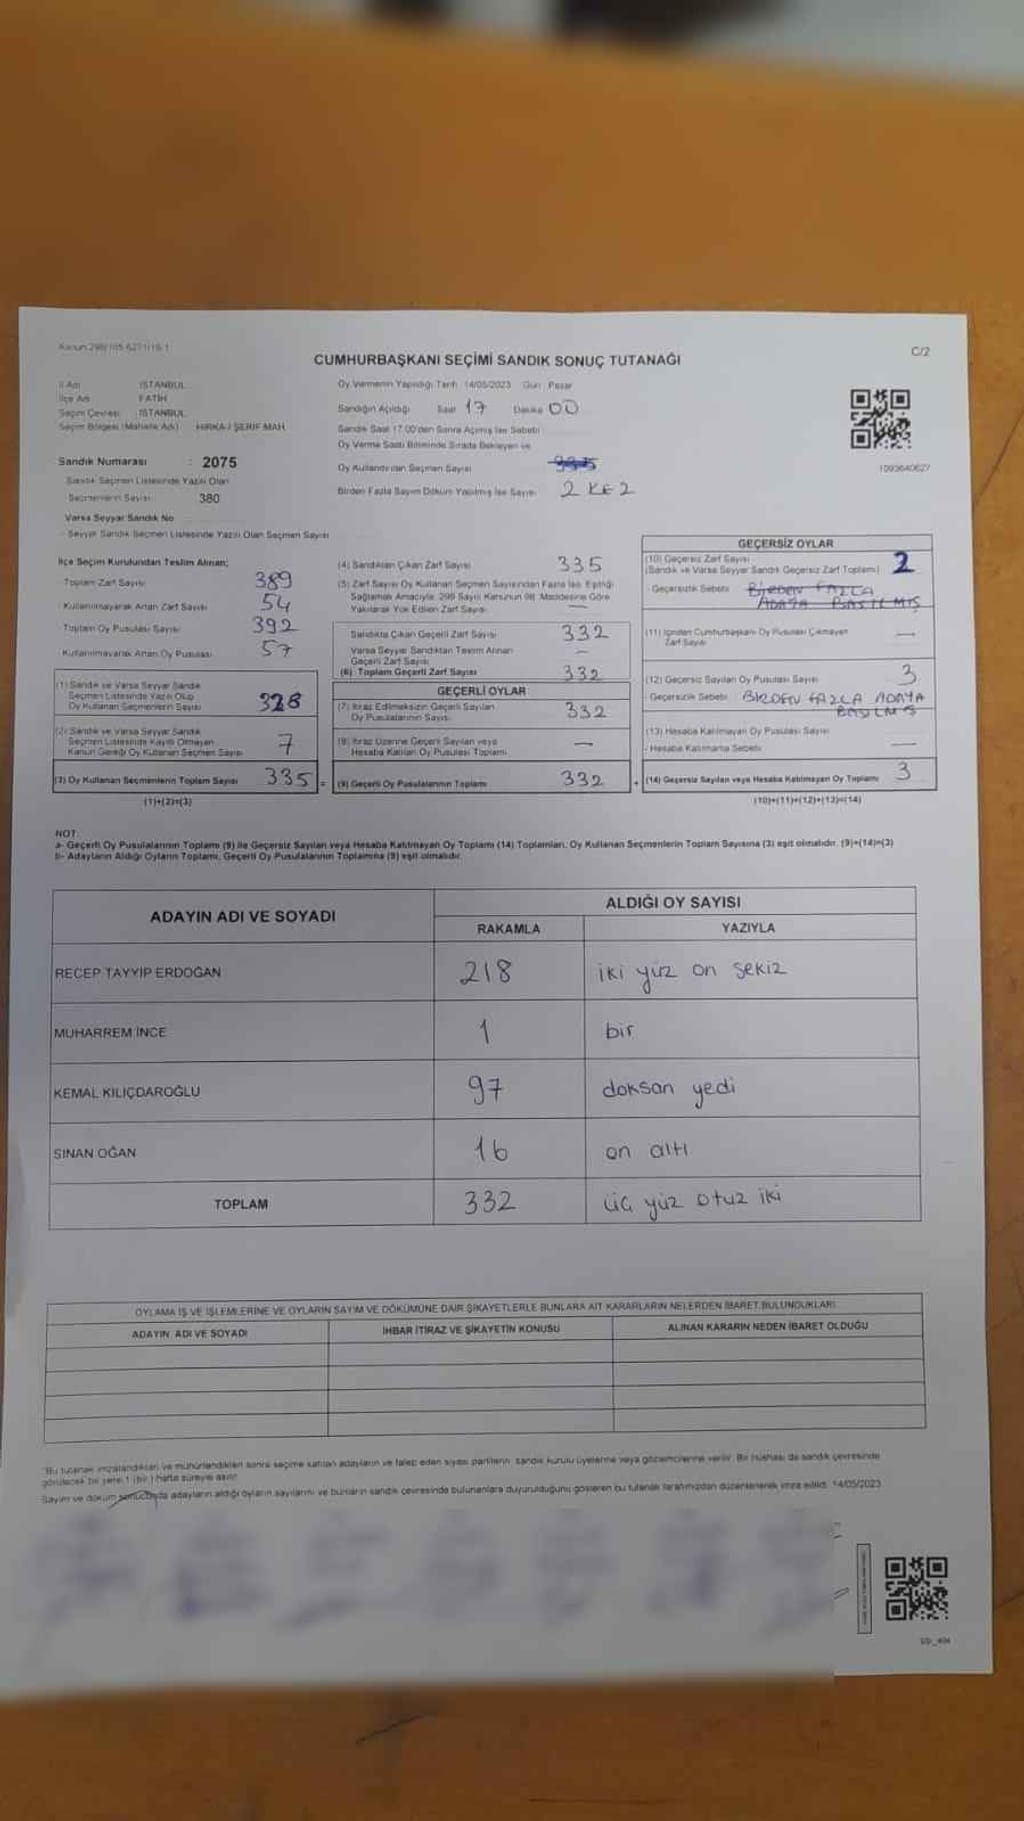 Kanun 298/105-6271/16-1
C/2
CUMHURBAŞKANI SEÇİMİ SANDIK SONUÇ TUTANAĞI
İl Adı İSTANBUL
İlçe Adı FATİH
Seçim Çevresi İSTANBUL
Seçim Bölgesi (Mahalle Adı) HIRKA-İ ŞERİF MAH.
Sandık Numarası : 2075
Sandık Seçmen Listesinde Yazılı Olan
Seçmenlerin Sayısı 380
Varsa Seyyar Sandık No
Seyyar Sandık Seçmen Listesinde Yazılı Olan Seçmen Sayısı
Oy Vermenin Yapıldığı Tarih 14/05/2023 Gün Pazar
Sandığın Açıldığı Saat 17 Dakika 00
Sandık Saat 17.00'den Sonra Açılmış İse Sebebi
Oy Verme Saati Bitiminde Sırada Bekleyen ve
Oy Kullandırılan Seçmen Sayısı 335
Birden Fazla Sayım Döküm Yapılmış İse Sayısı 2 KEZ
1093640627
İlçe Seçim Kurulundan Teslim Alınan;
Toplam Zarf Sayısı 389
Kullanılmayarak Artan Zarf Sayısı 54
Toplam Oy Pusulası Sayısı 392
Kullanılmayarak Artan Oy Pusulası 57
(1) Sandık ve Varsa Seyyar Sandık
Seçmen Listesinde Yazılı Olup
Oy Kullanan Seçmenlerin Sayısı 328
(2) Sandık ve Varsa Seyyar Sandık
Seçmen Listesinde Kayıtlı Olmayan
Kanun Gereği Oy Kullanan Seçmen Sayısı 7
(3) Oy Kullanan Seçmenlerin Toplam Sayısı 335 =
(1)+(2)=(3)
(4) Sandıktan Çıkan Zarf Sayısı 335
(5) Zarf Sayısı Oy Kullanan Seçmen Sayısından Fazla İse, Eşitliği
Sağlamak Amacıyla; 298 Sayılı Kanunun 98. Maddesine Göre
Yakılarak Yok Edilen Zarf Sayısı —
Sandıkta Çıkan Geçerli Zarf Sayısı 332
Varsa Seyyar Sandıktan Teslim Alınan
Geçerli Zarf Sayısı —
(6) Toplam Geçerli Zarf Sayısı 332
GEÇERLİ OYLAR
(7) İtiraz Edilmeksizin Geçerli Sayılan
Oy Pusulalarının Sayısı 332
(8) İtiraz Üzerine Geçerli Sayılan veya
Hesaba Katılan Oy Pusulası Toplamı —
(9) Geçerli Oy Pusulalarının Toplamı 332 +
GEÇERSİZ OYLAR
(10) Geçersiz Zarf Sayısı
(Sandık ve Varsa Seyyar Sandık Geçersiz Zarf Toplamı) 2
- Geçersizlik Sebebi BİRDEN FAZLA
ADAYA BASILMIŞ
(11) İçinden Cumhurbaşkanı Oy Pusulası Çıkmayan
Zarf Sayısı —
(12) Geçersiz Sayılan Oy Pusulası Sayısı 3
- Geçersizlik Sebebi BİRDEN FAZLA ADAYA
BASILMIŞ
(13) Hesaba Katılmayan Oy Pusulası Sayısı
- Hesaba Katılmama Sebebi —
(14) Geçersiz Sayılan veya Hesaba Katılmayan Oy Toplamı 3
(10)+(11)+(12)+(13)=(14)
NOT:
a- Geçerli Oy Pusulalarının Toplamı (9) ile Geçersiz Sayılan veya Hesaba Katılmayan Oy Toplamı (14) Toplamları, Oy Kullanan Seçmenlerin Toplam Sayısına (3) eşit olmalıdır. (9)+(14)=(3)
b- Adayların Aldığı Oyların Toplamı, Geçerli Oy Pusulalarının Toplamına (9) eşit olmalıdır.
ADAYIN ADI VE SOYADI
ALDIĞI OY SAYISI
RAKAMLA YAZIYLA
RECEP TAYYİP ERDOĞAN 218 iki yüz on sekiz
MUHARREM İNCE 1 bir
KEMAL KILIÇDAROĞLU 97 doksan yedi
SİNAN OĞAN 16 on altı
TOPLAM 332 üç yüz otuz iki
OYLAMA İŞ VE İŞLEMLERİNE VE OYLARIN SAYIM VE DÖKÜMÜNE DAİR ŞİKAYETLERLE BUNLARA AİT KARARLARIN NELERDEN İBARET BULUNDUKLARI
ADAYIN ADI VE SOYADI İHBAR İTİRAZ VE ŞİKAYETİN KONUSU ALINAN KARARIN NEDEN İBARET OLDUĞU
"Bu tutanak imzalandıktan ve mühürlendikten sonra seçime katılan adayların ve talep eden siyasi partilerin sandık kurulu üyelerine veya gözlemcilerine verilir. Bir nüshası da sandık çevresinde
görülecek bir yere 1 (bir) hafta süreyle asılır.
Sayım ve döküm sonucunda adayların aldığı oyların sayılarını ve bunların sandık çevresinde bulunanlara duyurulduğunu gösteren bu tutanak tarafımızdan düzenlenerek imza edildi. 14/05/2023